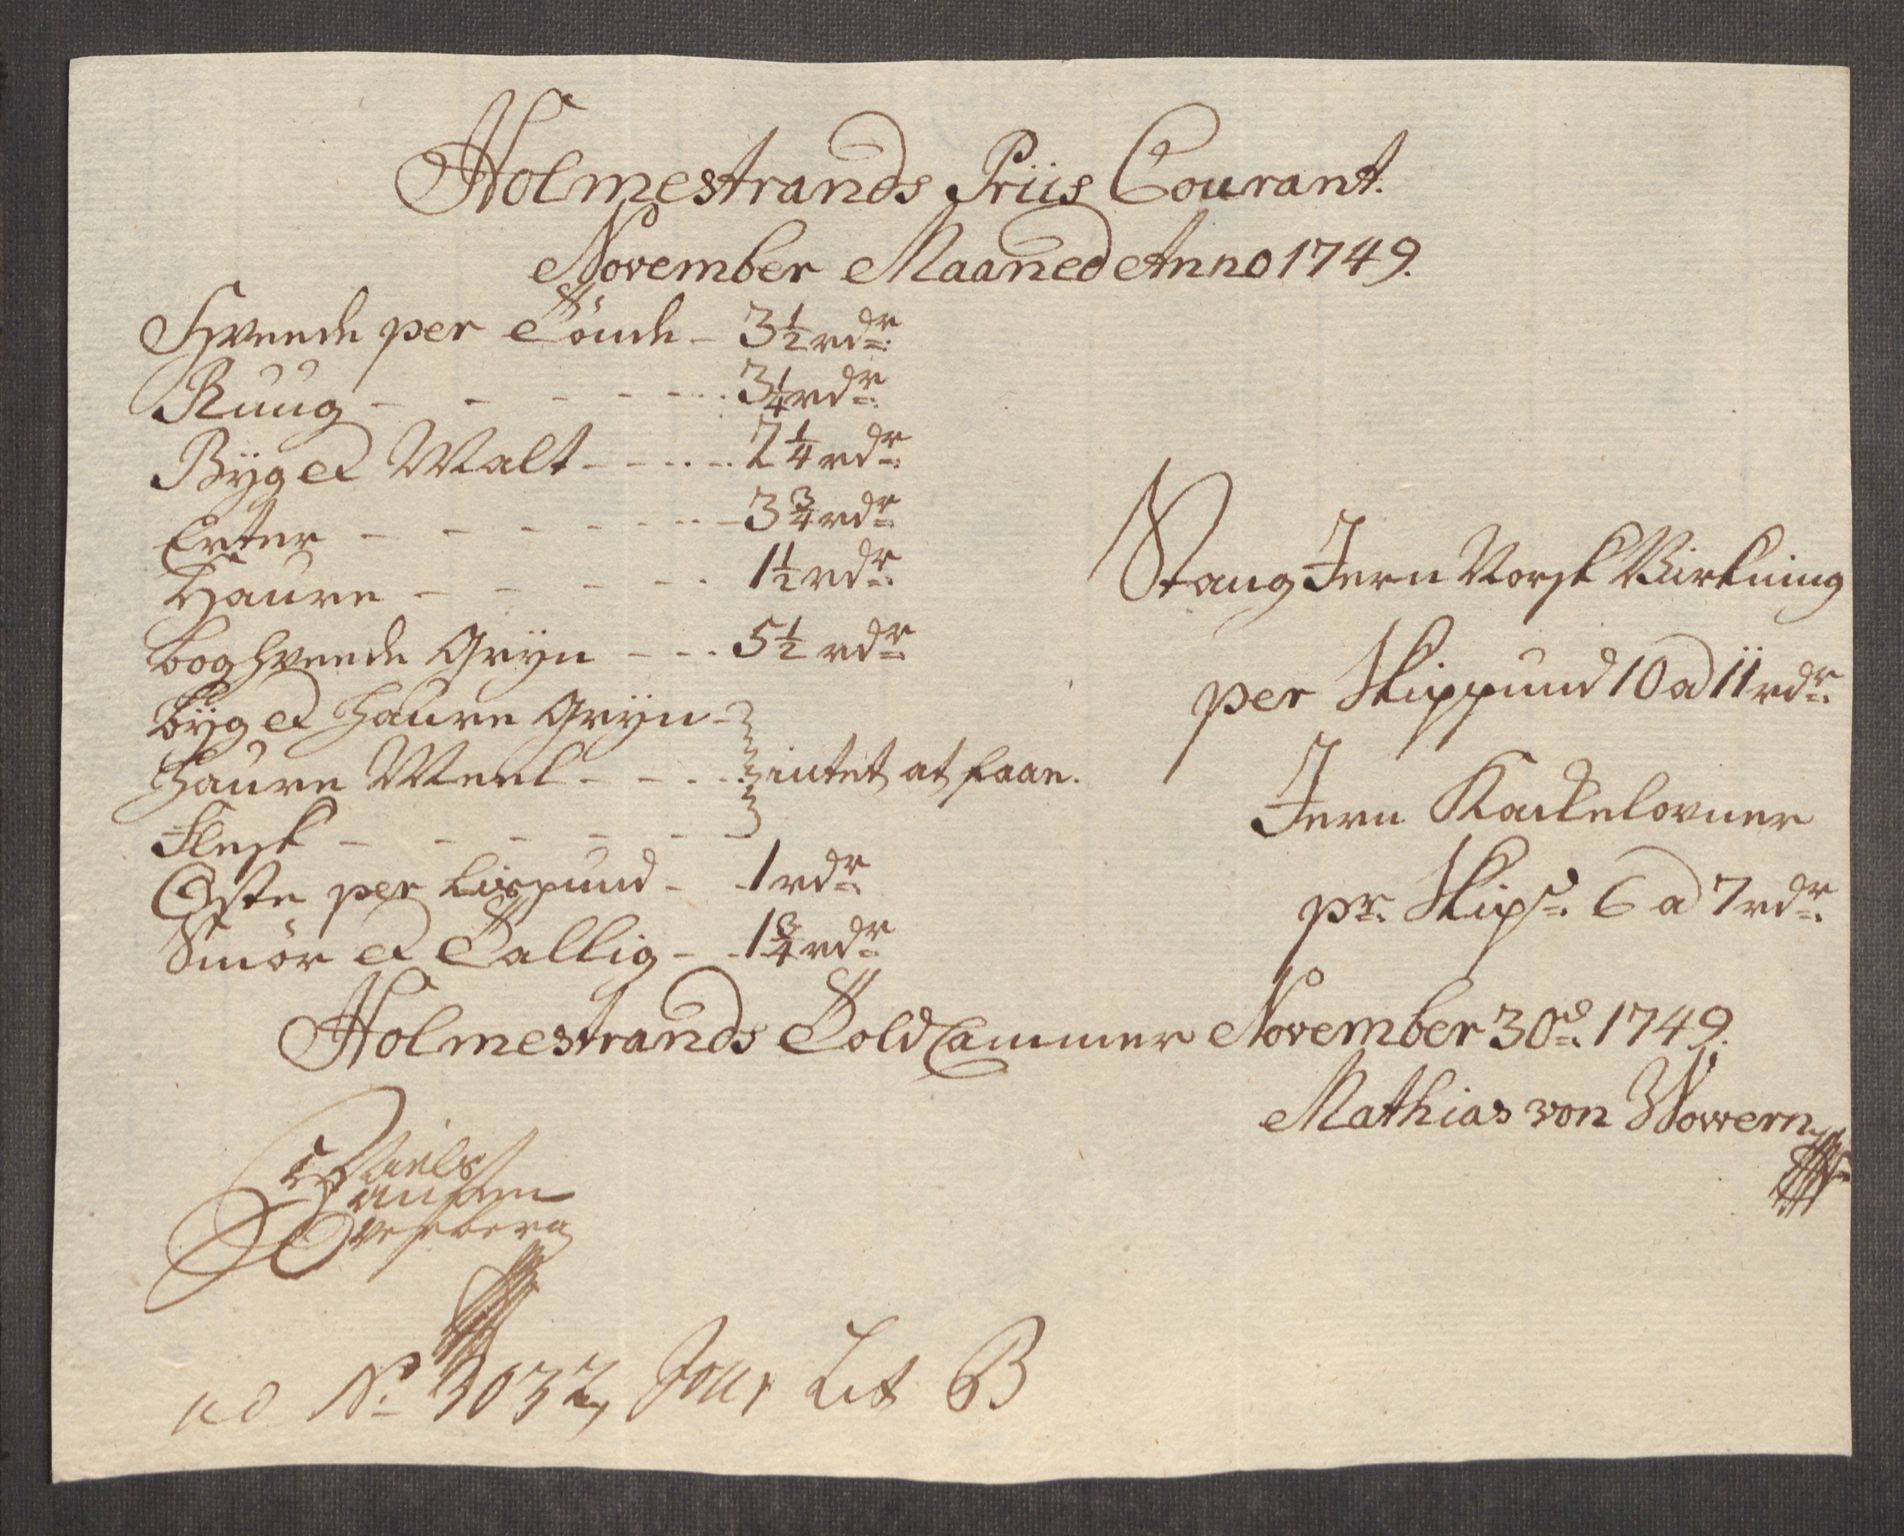 Holmestrands Priis Courant.
November Maaned Anno 1749.
Hveede per Tönde - 3½ rdr:
Ruug - - - - - - 3¼ rdr:
Byg et Malt - - - - - 2¼ rdr:
Erter - - - - - - - 3¾ rdr:
Haure - - - - - - 1½ rdr:
boghveede Gryn - - - 5½ rdr:
byg et haure Gryn -
haure Meel - - - - intet at faae.
Flesk - - - - - -
Oste per Lispund - - 1 rdr:
Smör et Tallig - - 1¾ rdr:
Stang Jern Norsk Virkning
per Skippund 10 a 11 rdr:
Jern Kackelovner
pr. Skip: 6 a 7 rdr:
Holmestrands Told Cammer November 30d: 1749.
Mathias von Wowern
Niels
Hansen
ad No: 3032, Jour Lit B